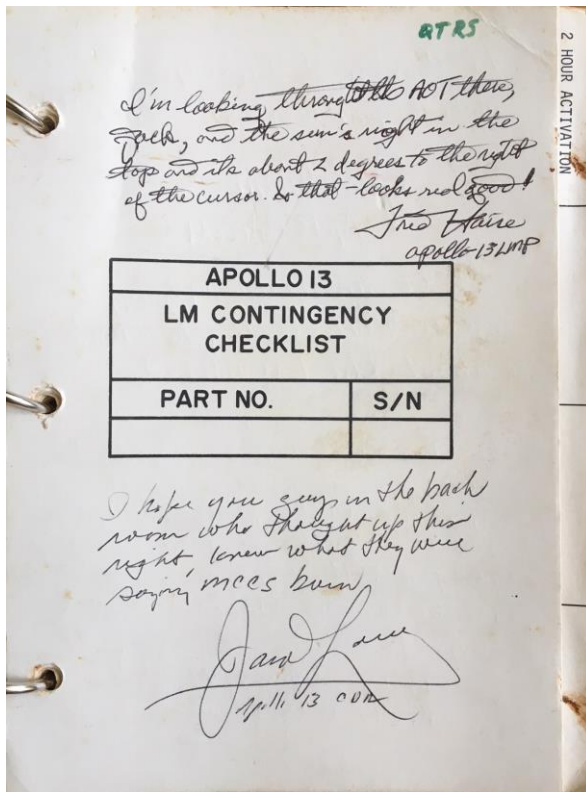 QTRS
2 HOUR ACTIVATION
I'm looking through the AOT there,
Jack, and the sun's right in the
top and its about 2 degrees to the right
of the cursor. So that looks real good!
Fred Haise
apollo-13 LMP
APOLLO 13
LM CONTINGENCY
CHECKLIST
PART NO. S/N
I hope you guys in the back
room who thought up this
right, knew what they were
sayin, mccs burn
James Lovell
Apollo 13 CDR